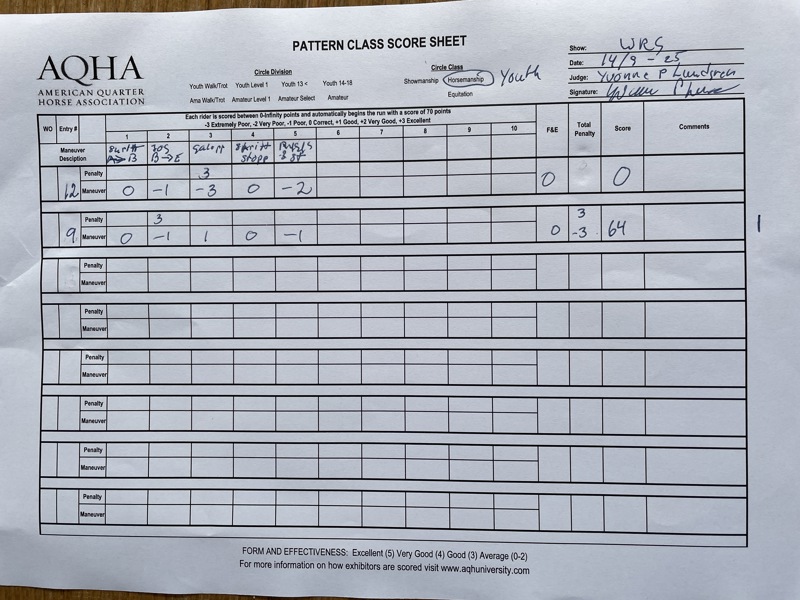 PATTERN CLASS SCORE SHEET
AQHA
AMERICAN QUARTER
HORSE ASSOCIATION
Circle Division
Youth Walk/Trot Youth Level 1 Youth 13 < Youth 14-18
Ama Walk/Trot Amateur Level 1 Amateur Select Amateur
Circle Class
Showmanship Horsemanship Youth
Equitation
Show: WRS
Date: 14/9-25
Judge: Yvonne P Lundgren
Signature:
Each rider is scored between 0-Infinity points and automatically begins the run with a score of 70 points
-3 Extremely Poor, -2 Very Poor, -1 Poor, 0 Correct, +1 Good, +2 Very Good, +3 Excellent
WO Entry # 1 2 3 4 5 6 7 8 9 10 F&E Total Penalty Score Comments
Maneuver Desciption B JOG B→E galopp Skritt stopp
Penalty 3
12 Maneuver 0 -1 -3 0 -2 0 0
Penalty 3 3
9 Maneuver 0 -1 1 0 -1 0 -3 64 1
Penalty
Maneuver
Penalty
Maneuver
Penalty
Maneuver
Penalty
Maneuver
Penalty
Maneuver
Penalty
Maneuver
FORM AND EFFECTIVENESS: Excellent (5) Very Good (4) Good (3) Average (0-2)
For more information on how exhibitors are scored visit www.aqhuniversity.com